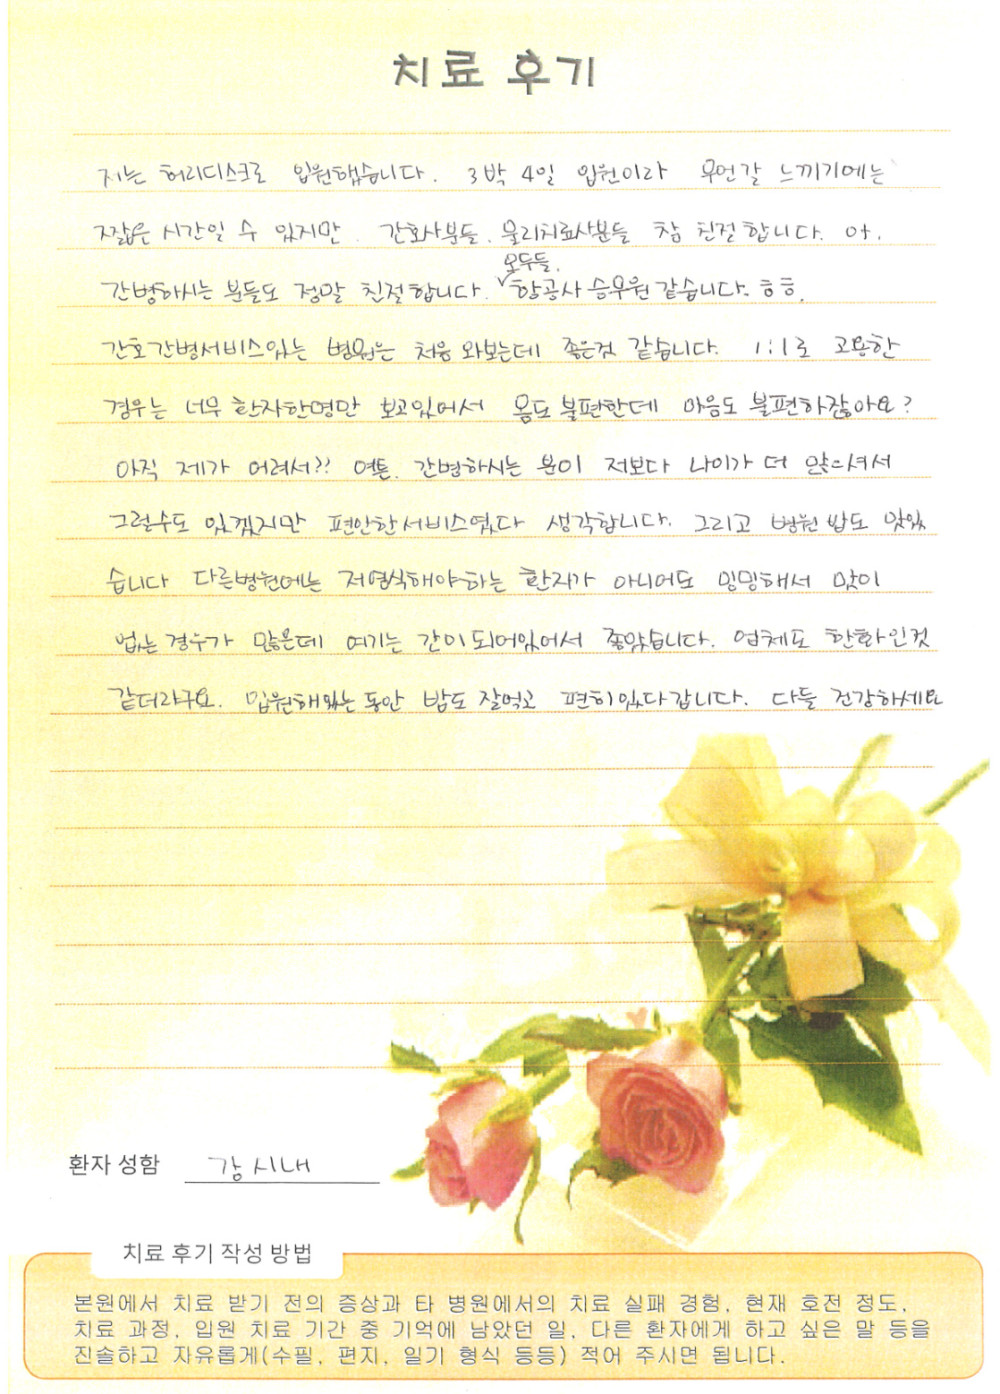 치료 후기
저는 허리디스크로 입원했습니다. 3박 4일 입원이라 무언갈 느끼기에는
짧은 시간일 수 있지만. 간호사분들. 물리치료사분들 참 친절합니다. 아.
모두들.
간병하시는 분들도 정말 친절합니다. 항공사 승무원 같습니다. ㅎㅎ.
간호간병서비스있는 병원은 처음 와보는데 좋은것 같습니다. 1:1로 고용한
경우는 너무 환자한명만 보고있어서 몸도 불편한데 마음도 불편하잖아요?
아직 제가 어려서?! 여튼. 간병하시는 분이 저보다 나이가 더 많으셔서
그럴수도 있겠지만 편안한서비스였다 생각합니다. 그리고 병원 밥도 맛있
습니다 다른병원에는 저염식해야하는 환자가 아니어도 밍밍해서 맛이
없는경우가 많은데 여기는 간이되어있어서 좋았습니다. 업체도 한화인것
같더라구요. 입원해있는동안 밥도 잘먹고 편히있다갑니다. 다들 건강하세요
환자 성함 강시내
치료 후기 작성 방법
본원에서 치료 받기 전의 증상과 타 병원에서의 치료 실패 경험, 현재 호전 정도,
치료 과정, 입원 치료 기간 중 기억에 남았던 일, 다른 환자에게 하고 싶은 말 등을
진솔하고 자유롭게(수필, 편지, 일기 형식 등등) 적어 주시면 됩니다.